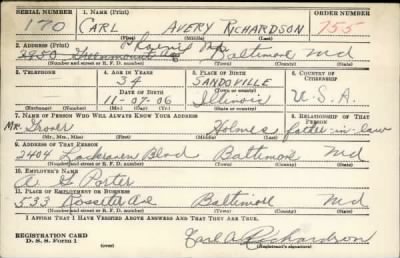 SERIAL NUMBER 1. NAME (Print) ORDER NUMBER
170 CARL AVERY RICHARDSON 755
(First) (Middle) (Last)
2. ADDRESS (Print)
2950 Greenmount Ave Baltimore Md
(Number and street or R. F. D. number) (Town) (County) (State)
3. TELEPHONE 4. AGE IN YEARS 5. PLACE OF BIRTH 6. COUNTRY OF CITIZENSHIP
34 SANDOVILLE
DATE OF BIRTH (Town or county)
11-07-06 Illinois U.S.A.
(Exchange) (Number) (Mo.) (Day) (Yr.) (State or country)
7. NAME OF PERSON WHO WILL ALWAYS KNOW YOUR ADDRESS 8. RELATIONSHIP OF THAT PERSON
Mr. Grover Holmes father-in-law
(Mr., Mrs., Miss) (First) (Middle) (Last)
9. ADDRESS OF THAT PERSON
2404 Lochraven Blvd Baltimore Md
(Number and street or R. F. D. number) (Town) (County) (State)
10. EMPLOYER'S NAME
A G Porter
11. PLACE OF EMPLOYMENT OR BUSINESS
533 Rossiter Ave Baltimore Md.
(Number and street or R. F. D. number) (Town) (County) (State)
I AFFIRM THAT I HAVE VERIFIED ABOVE ANSWERS AND THAT THEY ARE TRUE.
REGISTRATION CARD
D. S. S. Form 1 (over) Carl A. Richardson
(Registrant's signature)